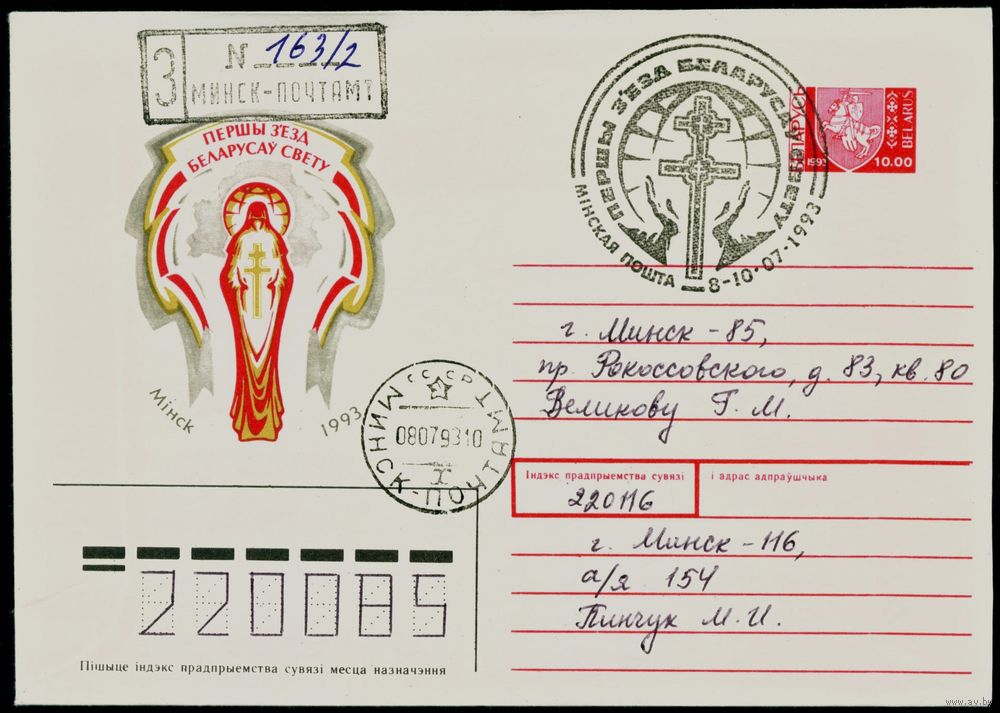 З
N 163/2
МИНСК-ПОЧТАМТ
ПЕРШЫ З'ЕЗД
БЕЛАРУСАЎ СВЕТУ
Мінск
1993
ПЕРШЫ З'ЕЗД БЕЛАРУСАЎ СВЕТУ
МІНСКАЯ ПОШТА
8-10·07·1993
БЕЛАРУСЬ
1993
10.00
BELARUS
г. Минск - 85,
пр. Рокоссовского, д. 83, кв. 80
Великову Г. М.
СССР
МИНСК-ПОЧТАМТ
08079310
Х
Індэкс прадпрыемства сувязі
і адрас адпраўшчыка
220116
г. Минск - 116,
а/я 154
Пинчук М. И.
220085
Пішыце індэкс прадпрыемства сувязі месца назначэння
www.av.by